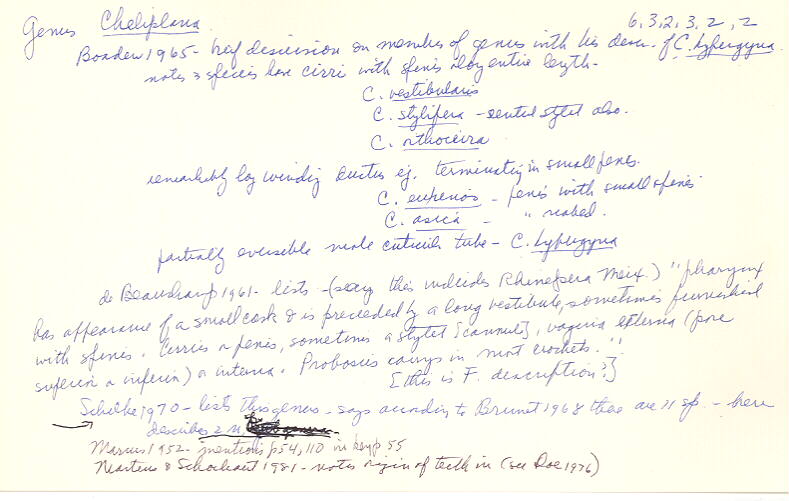 Genus Cheliplana 6,3,2,3,2,2
Boaden 1965 - brief discussion on members of genus with his descr. of C. hypergyna
notes 3 species have cirri with spines along entire length -
C. vestibularis
C. stylifera - stylet also.
C. orthocirra
remarkably long winding ductus ej. terminating in small penes.
C. euperios - penis with small spines
C. asica - " naked.
partially eversible male cuticular tube - C. hypergyna
de Beauchamp 1961 - lists - (says this includes Rhinepera Meix.) "pharynx
has appearance of a small cask & is preceded by a long vestibule, sometimes furnished
with spines. Cirrus or penis, sometimes a stylet [cannule], vagina externa (pore
superior or inferior) or interna. Proboscis carries in most crochets."
[this is F. description?]
Schilke 1970 - lists this genus - says according to Brunet 1968 there are 11 sp. - here
describes 2 n
Marcus 1952 - mentions p54, 110 in key p 55
Martens & Schockaert 1981 - notes origin of teeth in (see Doe 1976)